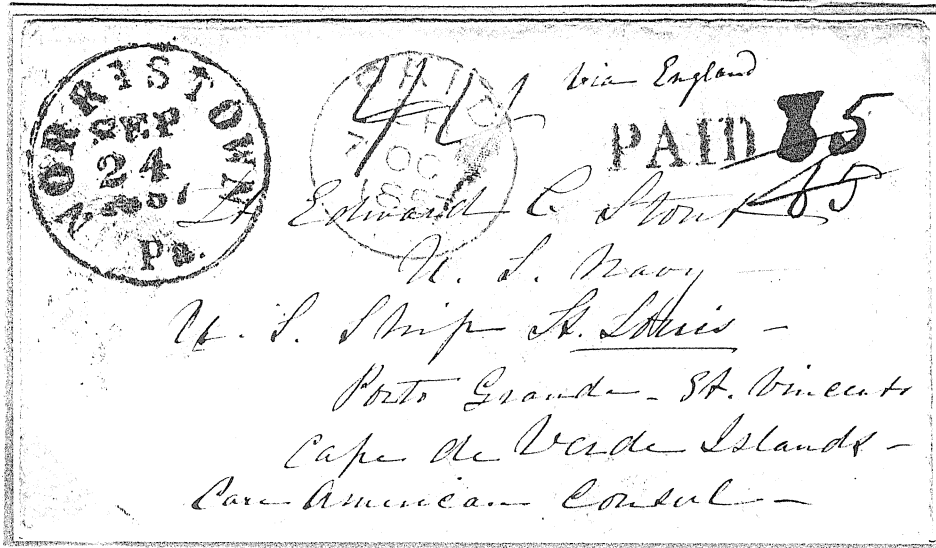 NORRISTOWN
SEP
24
Pa.
via England
PAID
45
Lt Edward C. Stout
U. S. Navy
U. S. Ship St. Louis -
Porto Grande - St. Vincents
Cape de Verde Islands -
Care American Consul -